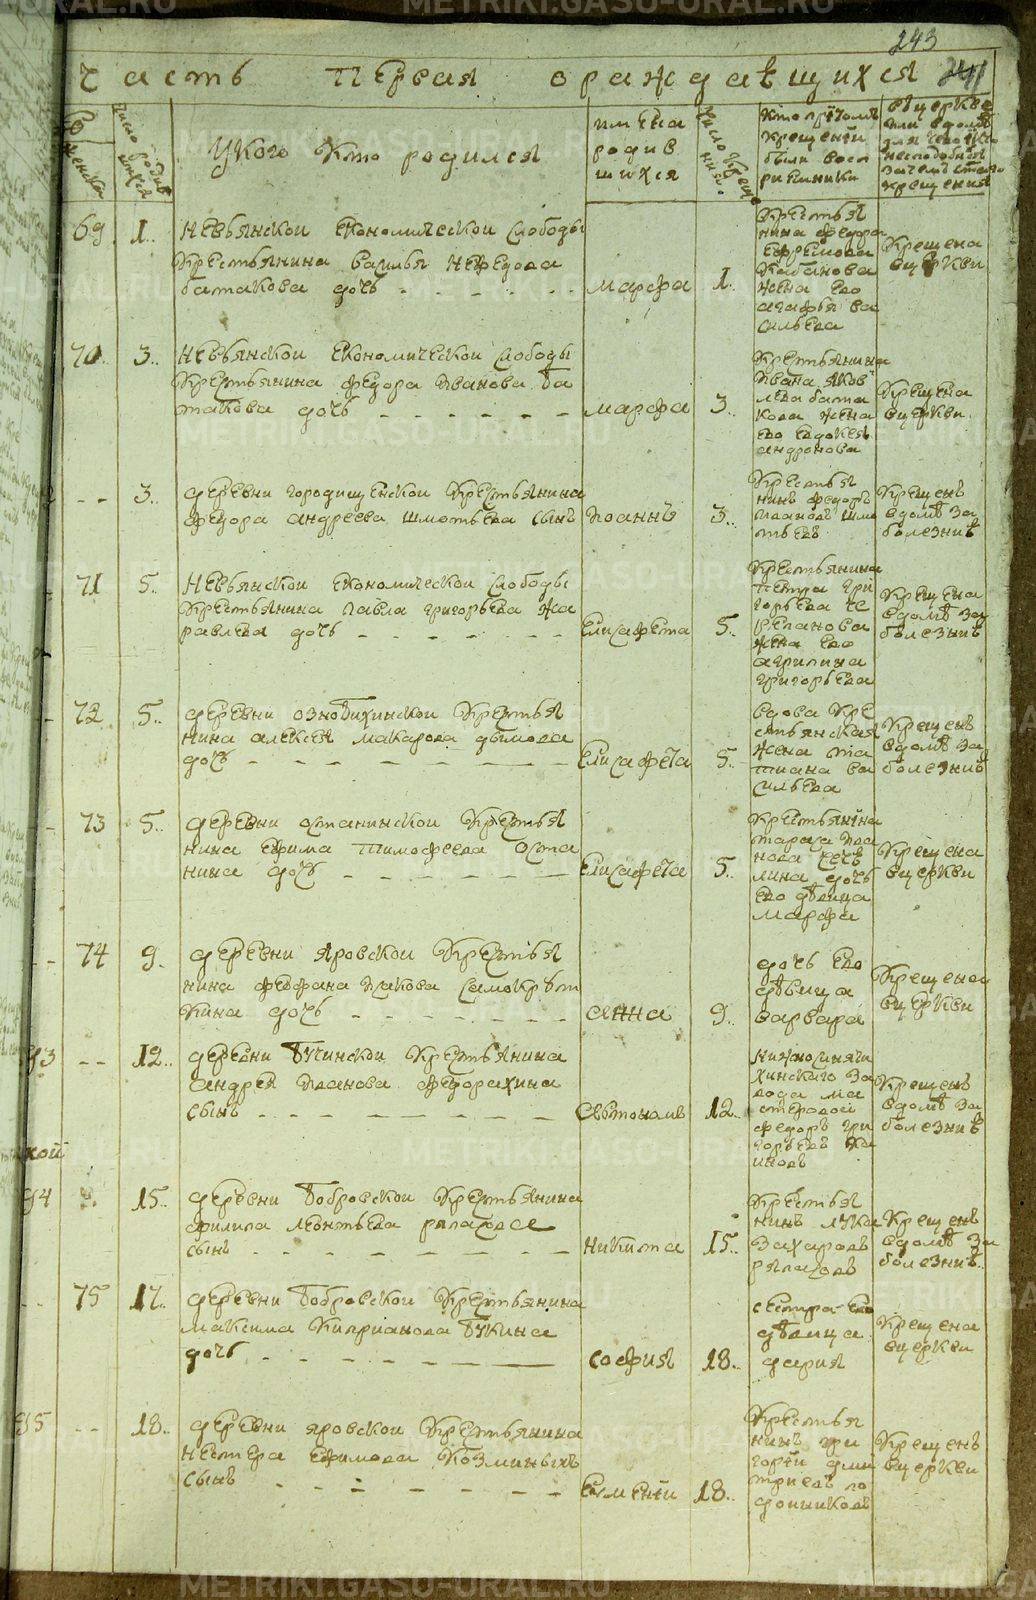 243
241
Часть первая о раждающихся
женска
число родив
шихся
У кого кто родился
имена
родив
шихся
число креще
ния
кто при томъ
крещении
были восп
риемники
в церкве
или в доме
крещения
69 1.. Невьянской економической слободы
крестьянина Василья Нефедова
батакова дочь - - - - - марфа 1..
крестья
нина федора
Ефремова
кабанова
жена ево
агафья ва
сильева
крещена
в церкви
70. 3.. Невьянской економической слободы
крестьянина федора Иванова ба
такова дочь - - - - - - марфа 3..
крестьянина
Ивана яков
лева бата
кова жена
ево евдокея
андронова
крещена
в церкви
- - 3.. деревни городищенской крестьянина
федора андреева шмотьева сынъ иоаннъ 3..
крестья
нинъ федоръ
ивановъ шмо
тьевъ
крещенъ
в доме за
болезние
71 5.. Невьянской економической слободы
крестьянина Павла григорьева жа
равлева дочь - - - - - - Елисафета 5..
крестьянина
петра гри
горьева че
репанова
жена ево
агрипина
григорьева
крещена
в доме за
болезние
72 5.. деревни ознобихинской крестья
нина алексея макарова дымова
дочь - - - - - - Елисафета 5..
вдова кре
стьянская
жена та
тиана ва
сильева
крещенъ
в доме за
болезние
73 5.. деревни останинской крестья
нина Ефима тимофеева оста
нина дочь - - - - - - Елисафета 5..
крестьянина
тараса ива
нова
дочь
ево девица
марфа
крещена
в церкви
74 9.. деревни яровской крестья
нина феофана Иакова самокрут
кина дочь - - - - - - анна 9..
дочь ево
девица
варвара
крещена
в церкви
93 - - 12.. деревни бучинской крестьянина
андрея Иванова федорахина
сынъ - - - - - - - - Евтономъ 12..
нижносиняги
хинскаго за
вода ма
стеровой
федоръ гри
горьевъ
крещенъ
в доме за
болезние
кой
94 15.. деревни бобровской крестьянина
филипа леонтьева
сынъ - - - - - - - никита 15..
крестья
нинъ лука
захаровъ
крещенъ
в доме за
болезние
- - 75 17.. деревни бобровской крестьянина
максима киприанова букина
дочь - - - - - - - софия 18..
сестра ево
девица
дария
крещена
в церкви
95 - - 18.. деревни яровской крестьянина
нестера Ефимова козминыхъ
сынъ - - - - - - - 18..
крестья
нинъ гри
горей дми
триевъ по
крещенъ
в церкви
METRIKI.GASO-URAL.RU